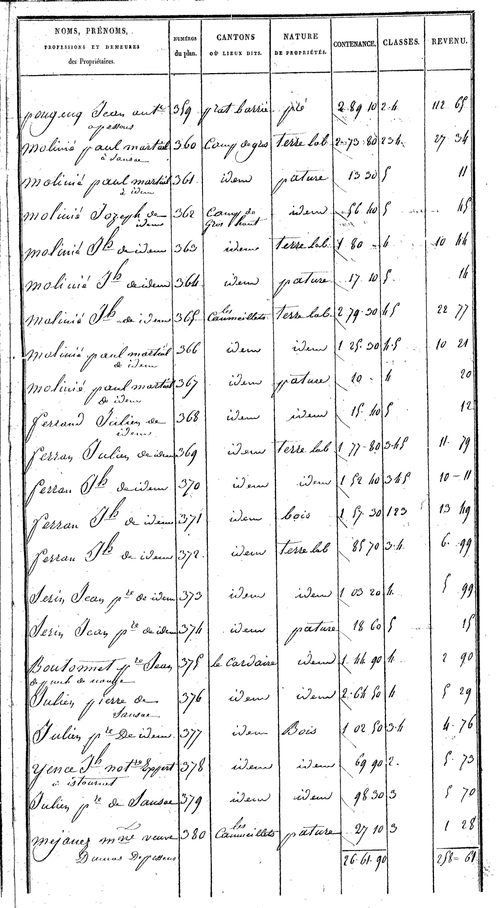 NOMS, PRÉNOMS, NUMÉROS CANTONS NATURE CONTENANCE. CLASSES. REVENU.
PROFESSIONS ET DEMEURES du plan. OÙ LIEUX DITS. DE PROPRIÉTÉS.
des Propriétaires.
Jean 359 prat barrié pré 2 89 10 2.4 112 65
molinié paul martial 360 Camp de gros terre lab 2 73 80 234 27 34
à Sausac
molinié paul martial 361 idem pature 13 30 5 11
à idem
molinié Jozeph de 362 Camp de idem 56 40 5 45
idem gros haut
molinié Jh de idem 363 idem terre lab 1 80 - 4 10 44
molinié Jh de idem 364 idem pature 17 10 5 14
molinié Jh de idem 365 les Caumeillets terre lab 2 79 30 45 22 77
molinié paul martial 366 idem idem 1 25 30 4.5 10 21
de idem
molinié paul martial 367 idem pature 10 - 4 20
de idem
ferrand Julien de 368 idem idem 15 40 5 12
idem
ferran Julien de idem 369 idem terre lab 1 77 80 345 11 79
ferran Jh de idem 370 idem idem 1 52 40 345 10 - 11
ferran Jh de idem 371 idem bois 1 57 30 123 13 49
ferran Jh de idem 372 idem terre lab 85 70 3.4 6 99
Serin Jean pre de idem 373 idem idem 1 03 20 4 5 99
Serin Jean pre de idem 374 idem pature 18 60 5 15
Boutonnet pre Jean 375 le Cardaire idem 1 44 90 4 2 90
Julien pierre de 376 idem idem 2 64 50 4 5 29
Sausac
Julien pre De idem 377 idem Bois 1 02 50 3.4 4 76
yence Jh notre 378 idem idem 69 90 2 5 73
à istournet
Julien pre de Sausac 379 idem idem 98 30 3 5 70
mejanez mne veuve 380 les Caumeillets pature 27 10 3 1 28
Dumas
26 61 90 258 = 61